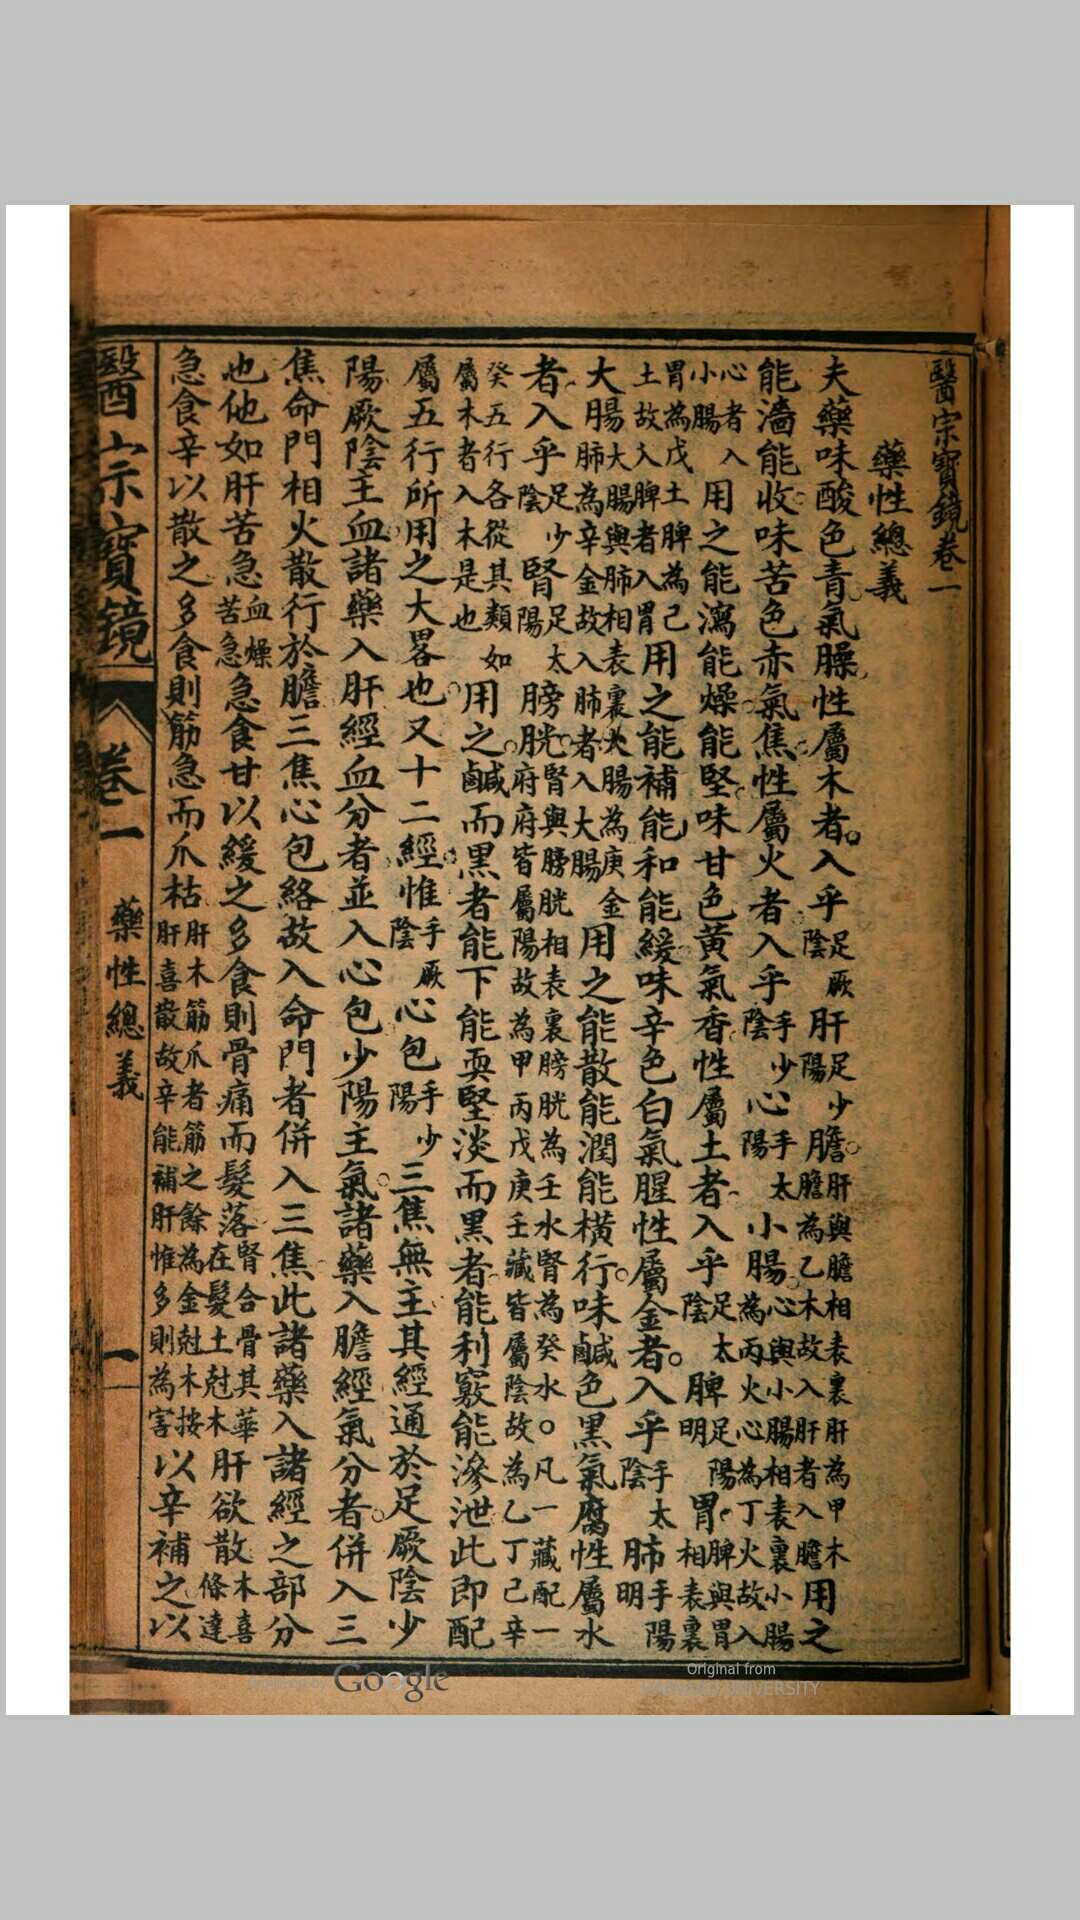 醫宗寶鏡卷一
藥性總義
夫藥味酸色青氣臊性屬木者入乎足厥陰肝足少陽膽肝與膽相表裏肝為甲木膽為乙木故入肝者入膽用之
能濇能收味苦色赤氣焦性屬火者入乎手少陰心手太陽小腸心與小腸相表裏小腸為丙火心為丁火故入
心者入小腸用之能瀉能燥能堅味甘色黃氣香性屬土者入乎足太陰脾足陽明胃脾與胃相表裏
胃為戊土脾為己土故入脾者入胃用之能補能和能緩味辛色白氣腥性屬金者入乎手太陰肺手陽明
大腸肺大腸與肺相表裏大腸為庚金肺為辛金故入肺者入大腸用之能散能潤能橫行味鹹色黑氣腐性屬水
者入乎足少陰腎足太陽膀胱腎與膀胱相表裏膀胱為壬水腎為癸水凡一藏配一府府皆屬陽故為甲丙戊庚壬藏皆屬陰故為乙丁己辛
癸五行各從其類如屬木者入木是也用之鹹而黑者能下能耎堅淡而黑者能利竅能滲泄此即配
屬五行所用之大畧也又十二經惟手厥陰心包手少陽三焦無主其經通於足厥陰少
陽厥陰主血諸藥入肝經血分者並入心包少陽主氣諸藥入膽經氣分者併入三
焦命門相火散行於膽三焦心包絡故入命門者併入三焦此諸藥入諸經之部分
也他如肝苦急血燥苦急急食甘以緩之多食則骨痛而髮落腎合骨其華在髮土尅木肝欲散木喜條達
急食辛以散之多食則筋急而爪枯肝木筋爪者筋之餘為金尅木按肝喜散故辛能補肝惟多則為害以辛補之以
醫宗寶鏡 卷一 藥性總義 一
Google
Original from